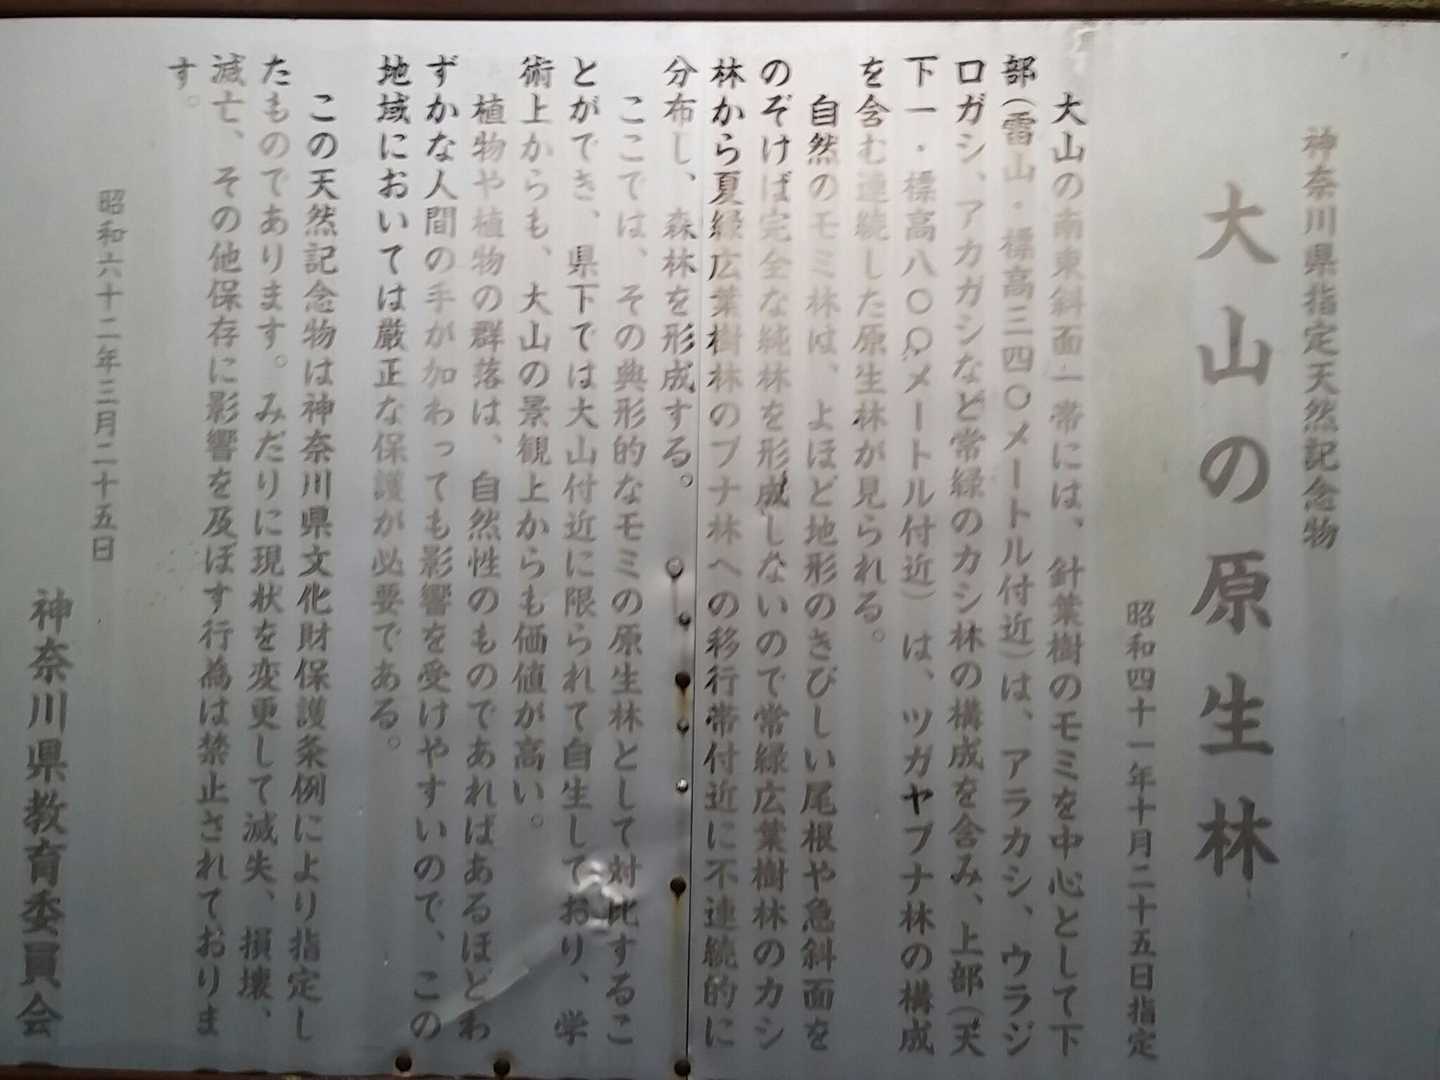 神奈川県指定天然記念物
大山の原生林
昭和四十一年十月二十五日指定
大山の南東斜面一帯には、針葉樹のモミを中心として下
部(雷山・標高三四〇メートル付近)は、アラカシ、ウラジ
ロガシ、アカガシなど常緑のカシ林の構成を含み、上部(天
下一・標高八〇〇メートル付近)は、ツガヤブナ林の構成
を含む連続した原生林が見られる。
自然のモミ林は、よほど地形のきびしい尾根や急斜面を
のぞけば完全な純林を形成しないので常緑広葉樹林のカシ
林から夏緑広葉樹林のブナ林への移行帯付近に不連続的に
分布し、森林を形成する。
ここでは、その典形的なモミの原生林として対比するこ
とができ、県下では大山付近に限られて自生しており、学
術上からも、大山の景観上からも価値が高い。
植物や植物の群落は、自然性のものであればあるほどわ
ずかな人間の手が加わっても影響を受けやすいので、この
地域においては厳正な保護が必要である。
この天然記念物は神奈川県文化財保護条例により指定し
たものであります。みだりに現状を変更して滅失、損壊、
滅亡、その他保存に影響を及ぼす行為は禁止されておりま
す。
昭和六十二年三月二十五日
神奈川県教育委員会